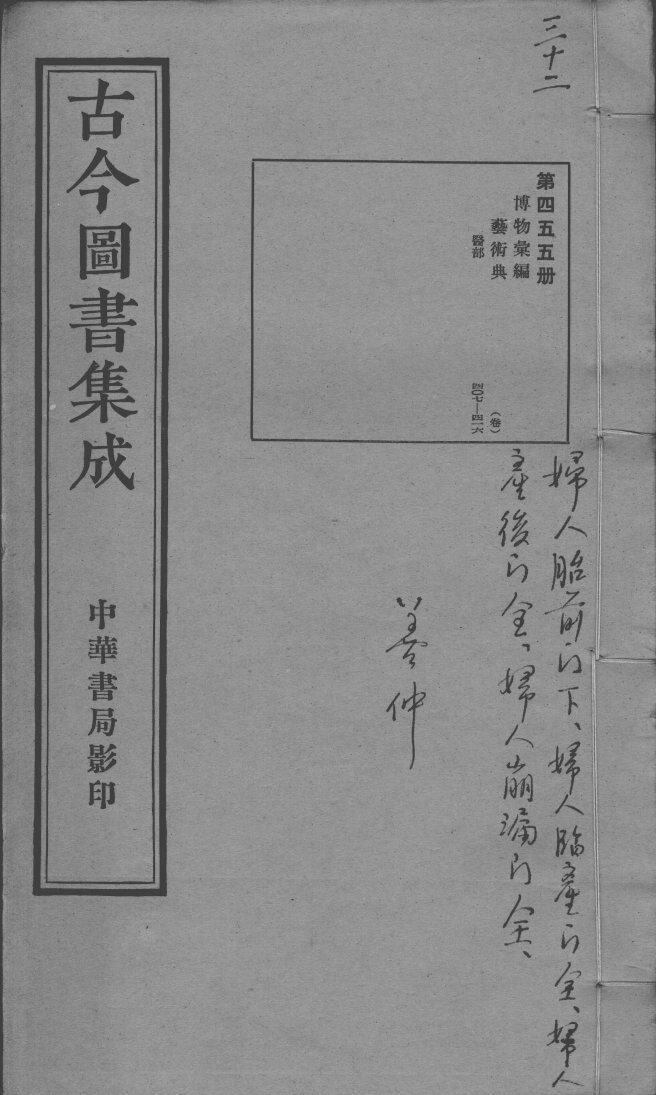 三十二
第四五五册
博物彙編
藝術典
醫部
(卷)
四〇七—四一六
婦人胎前門下、婦人臨產門全、婦人
產後門全、婦人崩漏門全、
善仲
古今圖書集成
中華書局影印